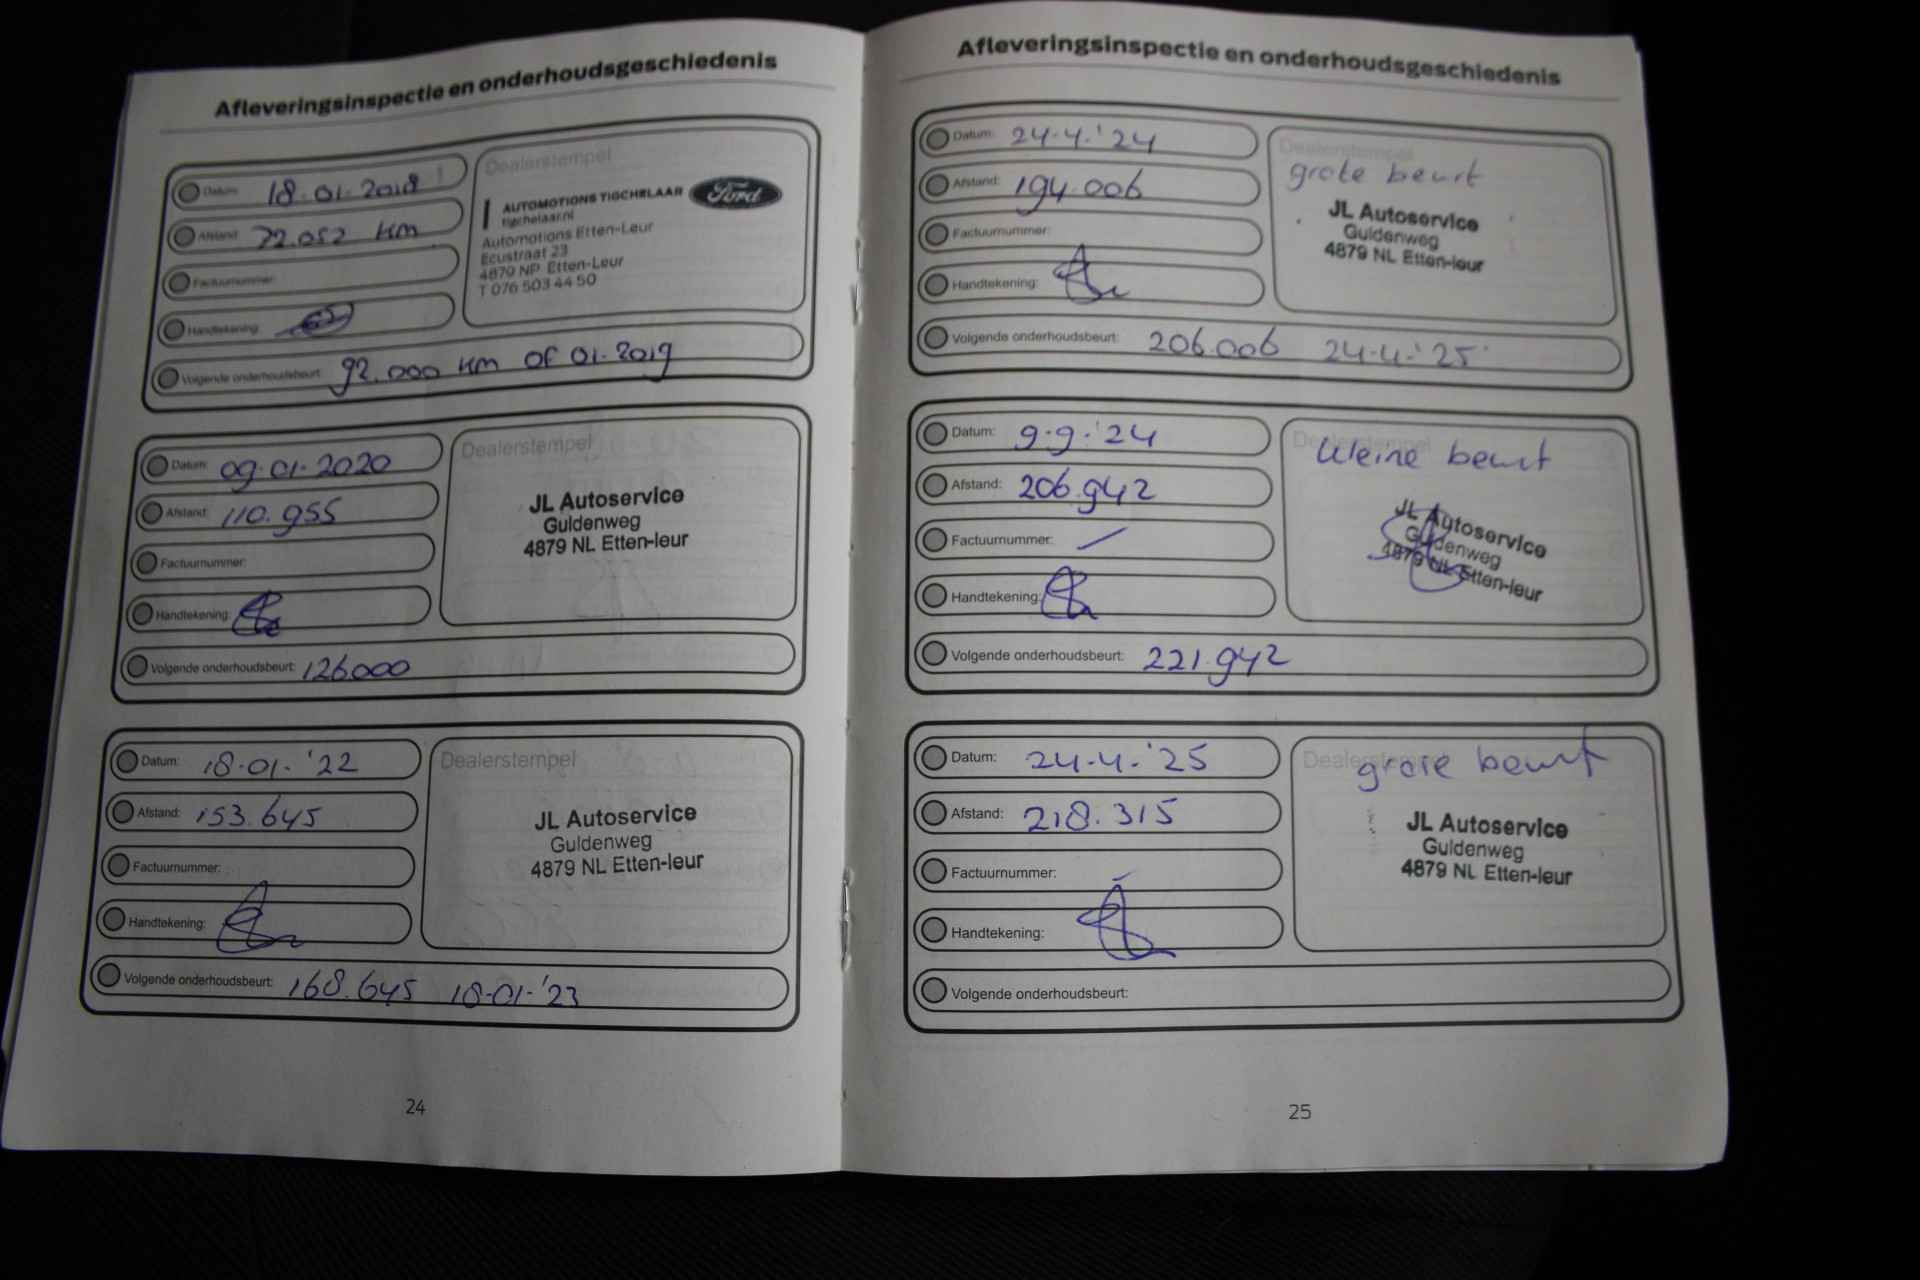 Afleveringsinspectie en onderhoudsgeschiedenis
Datum: 18.01.2018
Afstand: 72.052 km
Factuurnummer:
Handtekening:
Dealerstempel
AUTOMOTIONS TIGCHELAAR
tigchelaar.nl
Ford
Automotions Etten-Leur
Ecustraat 23
4879 NP Etten-Leur
T 076 503 44 50
Volgende onderhoudsbeurt: 92.000 km OF 01.2019
Datum: 09.01.2020
Afstand: 110.955
Factuurnummer:
Handtekening:
Dealerstempel
JL Autoservice
Guldenweg
4879 NL Etten-leur
Volgende onderhoudsbeurt: 126000
Datum: 18.01.'22
Afstand: 153.645
Factuurnummer:
Handtekening:
Dealerstempel
JL Autoservice
Guldenweg
4879 NL Etten-leur
Volgende onderhoudsbeurt: 168.645 18-01-'23
24
Afleveringsinspectie en onderhoudsgeschiedenis
Datum: 24.4.'24
Afstand: 194.006
Factuurnummer:
Handtekening:
Dealerstempel
grote beurt
JL Autoservice
Guldenweg
4879 NL Etten-leur
Volgende onderhoudsbeurt: 206.006 24.4.'25
Datum: 9.9.'24
Afstand: 206.942
Factuurnummer:
Handtekening:
Dealerstempel
kleine beurt
JL Autoservice
Guldenweg
4879 NL Etten-leur
Volgende onderhoudsbeurt: 221.942
Datum: 24.4.'25
Afstand: 218.315
Factuurnummer: -
Handtekening:
Dealerstempel
grote beurt
JL Autoservice
Guldenweg
4879 NL Etten-leur
Volgende onderhoudsbeurt:
25